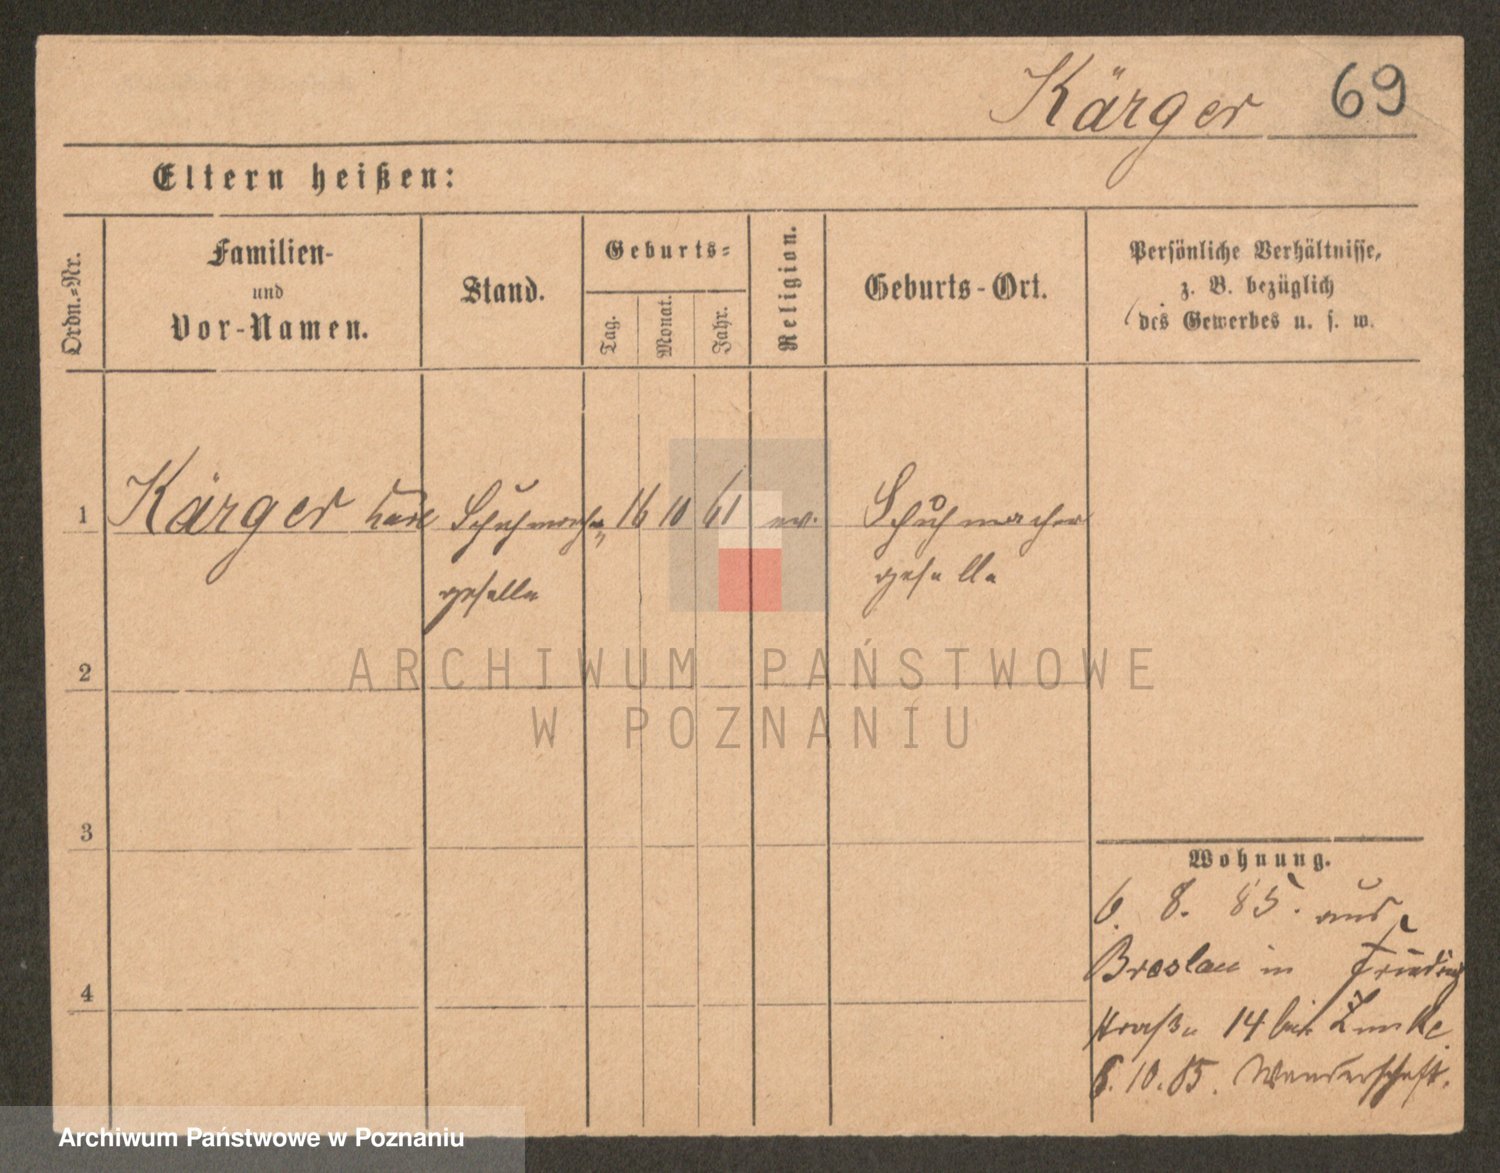 Kärger 69
Eltern heißen:
Ordn.=Nr.
Familien-
und
Vor-Namen.
Stand.
Geburts=
Tag.
Monat.
Jahr.
Religion.
Geburts-Ort.
Persönliche Verhältnisse,
z. B. bezüglich
des Gewerbes u. s. w.
1 Kärger Karl Schuhmacher 16 10 61 ev. Schuhmacher
geselle geselle
2
3
4
Wohnung.
6. 8. 85. aus
Breslau in Friedrich
straße 14 bei
6. 10. 85. Wanderschaft.
ARCHIWUM PAŃSTWOWE
W POZNANIU
Archiwum Państwowe w Poznaniu